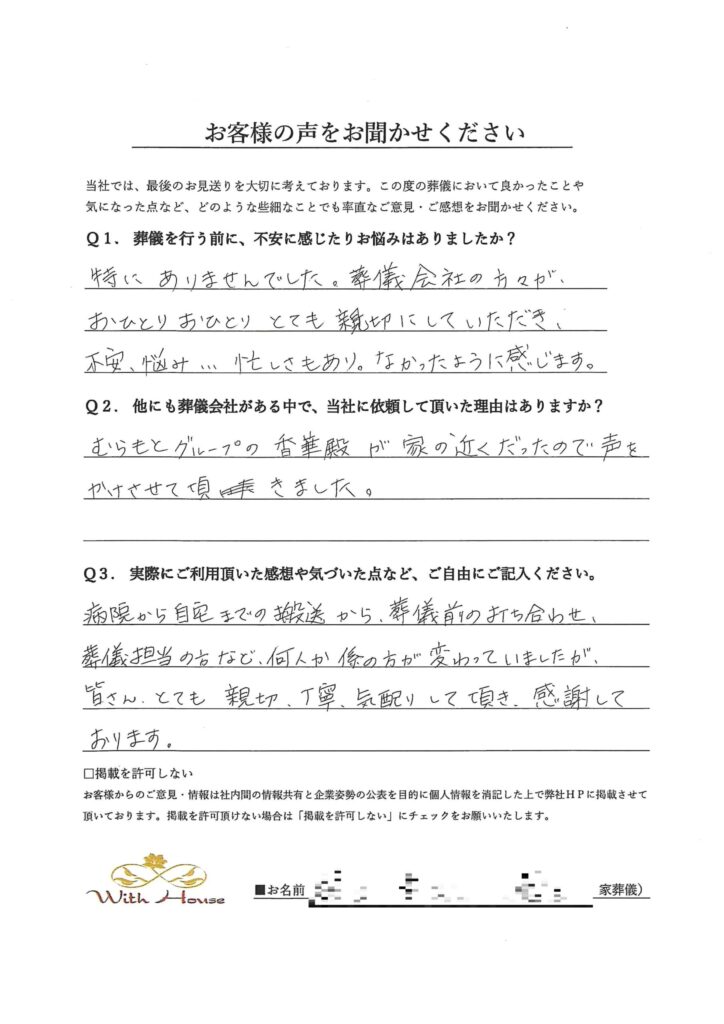 お客様の声をお聞かせください
当社では、最後のお見送りを大切に考えております。この度の葬儀において良かったことや
気になった点など、どのような些細なことでも率直なご意見・ご感想をお聞かせください。
Q1. 葬儀を行う前に、不安に感じたりお悩みはありましたか？
特に ありませんでした。葬儀会社の方々が、
おひとりおひとり とても 親切にしていただき、
不安、悩み… 忙しさもあり。なかったように感じます。
Q2. 他にも葬儀会社がある中で、当社に依頼して頂いた理由はありますか？
むらもとグループの 香華殿 が 家の近くだったので声を
かけさせて頂きました。
Q3. 実際にご利用頂いた感想や気づいた点など、ご自由にご記入ください。
病院から自宅までの搬送から、葬儀前の打ち合わせ、
葬儀担当の方など、何人か係の方が変わっていましたが、
皆さん、とても 親切、丁寧、気配りして頂き、感謝して
おります。
□掲載を許可しない
お客様からのご意見・情報は社内間の情報共有と企業姿勢の公表を目的に個人情報を消記した上で弊社HPに掲載させて
頂いております。掲載を許可頂けない場合は「掲載を許可しない」にチェックをお願いいたします。
With House
■お名前 家葬儀）